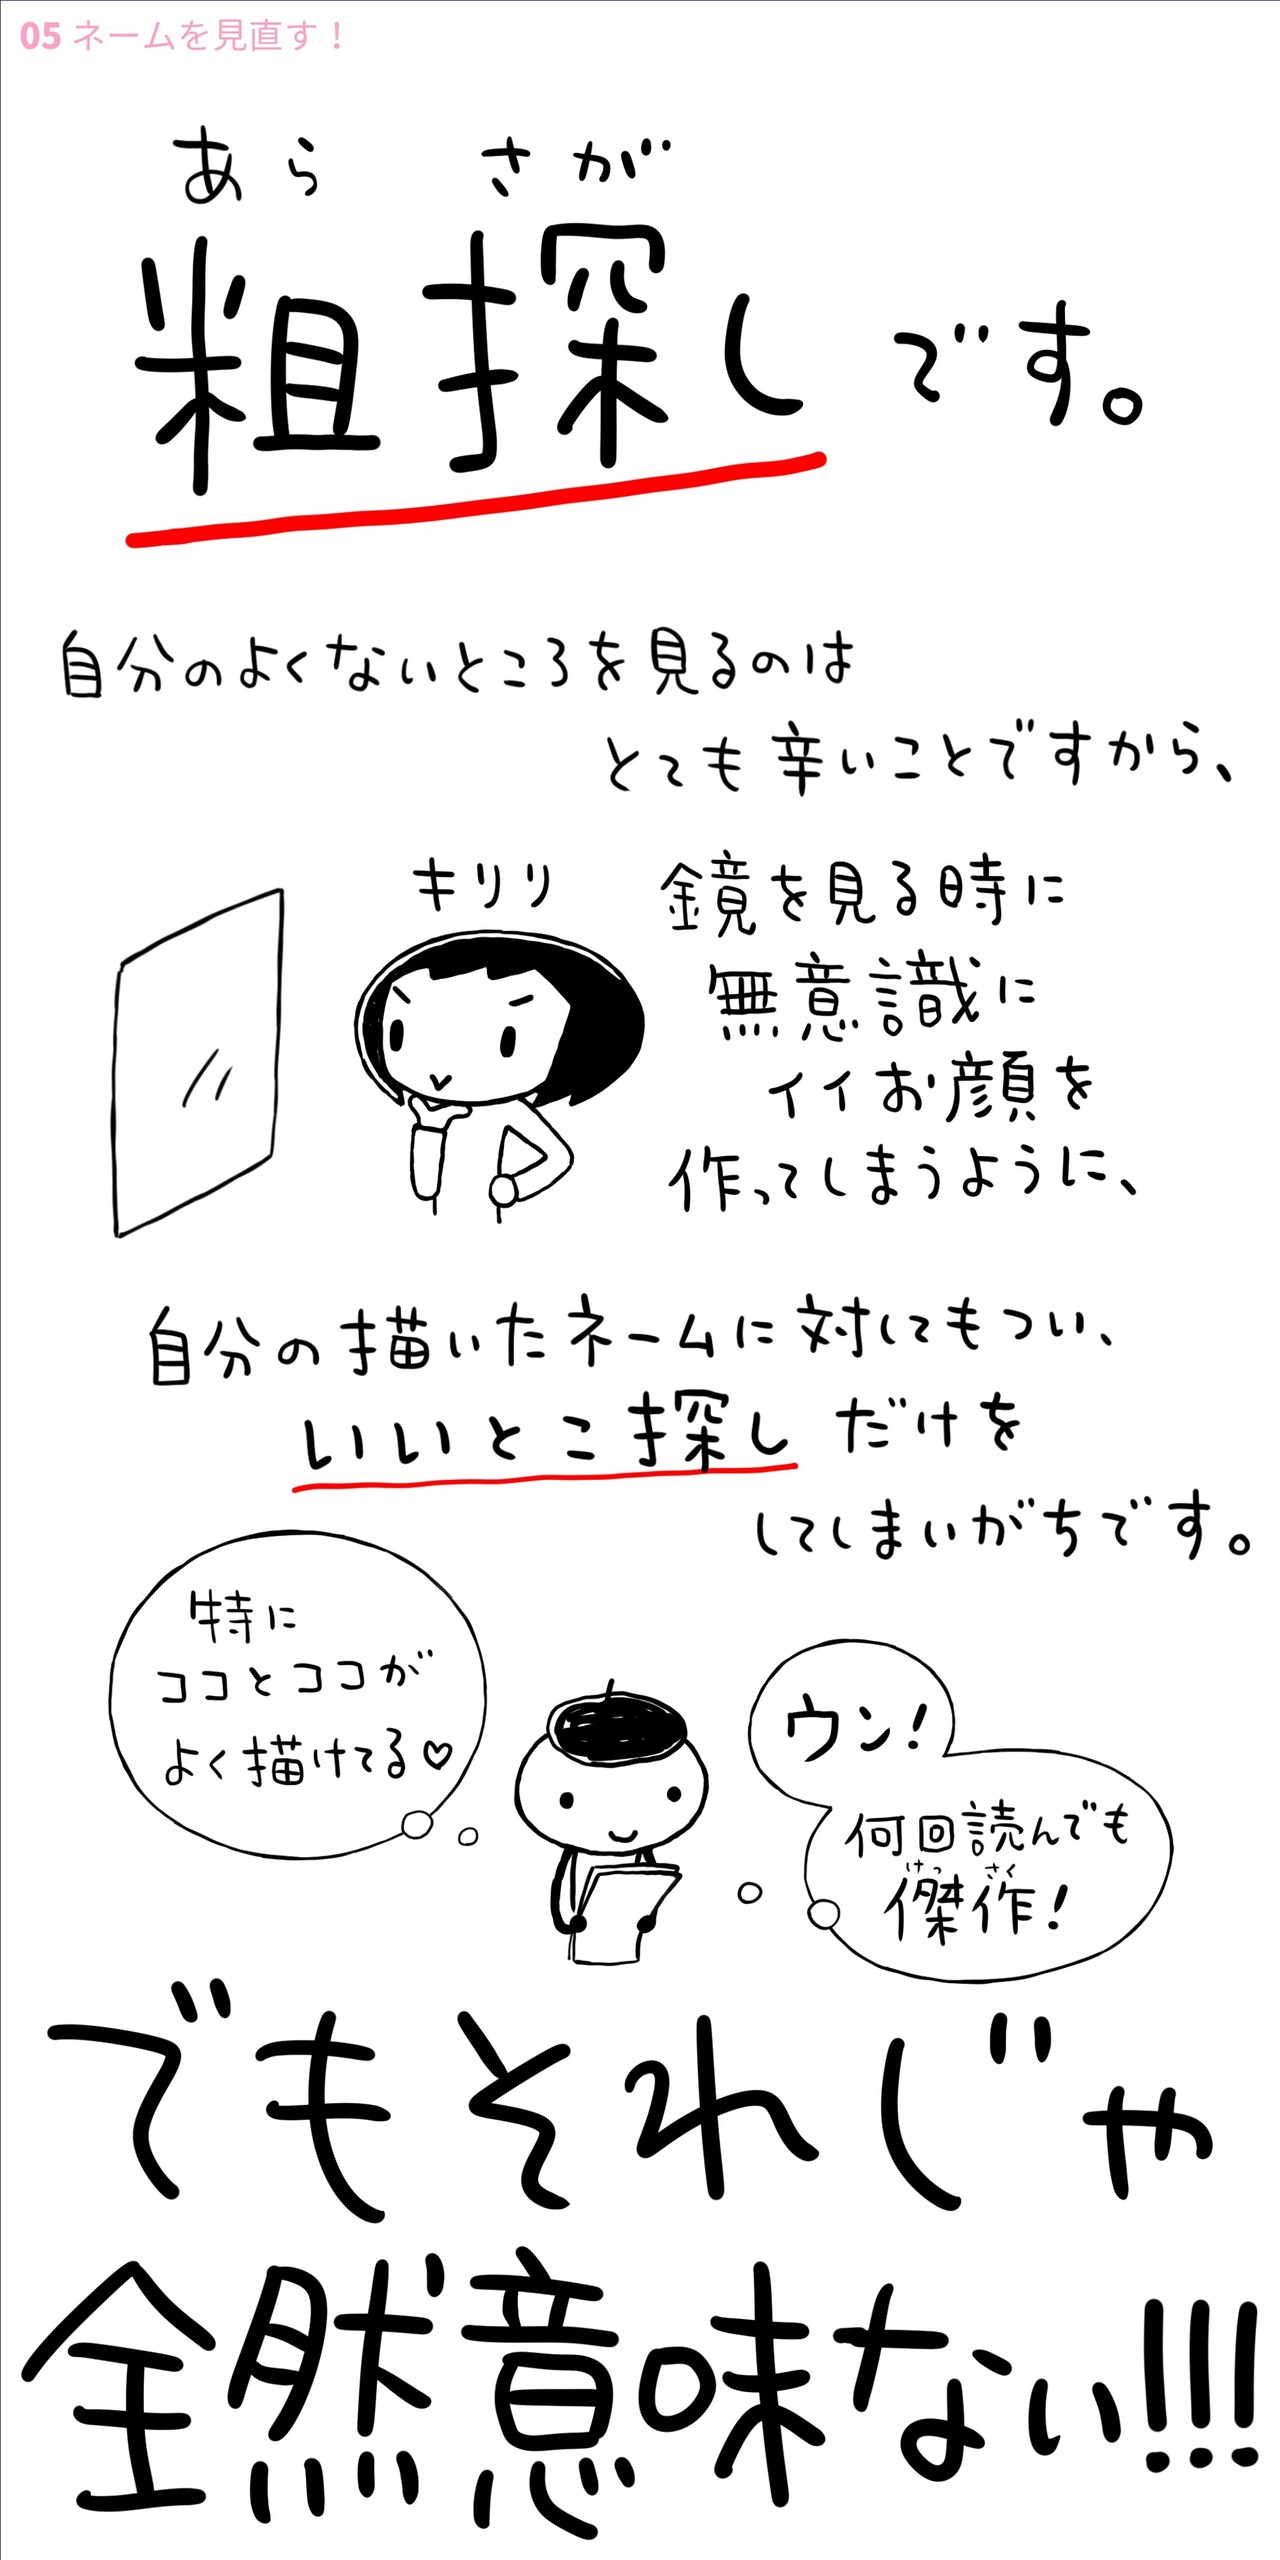 05 ネームを見直す！
あら さが
粗探しです。
自分のよくないところを見るのは
とても辛いことですから、
キリリ
鏡を見る時に
無意識に
イイお顔を
作ってしまうように、
自分の描いたネームに対してもつい、
いいとこ探しだけを
してしまいがちです。
特に
ココとココが
よく描けてる♡
ウン!
何回読んでも
けっ さく
傑作!
でもそれじゃ
全然意味ない!!!